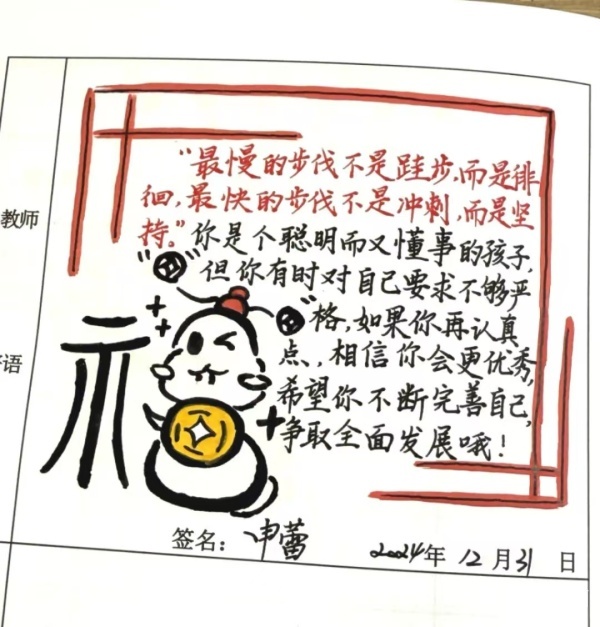 教师
语
“最慢的步伐不是跬步,而是徘
徊,最快的步伐不是冲刺,而是坚
持。”你是个聪明而又懂事的孩子,
但你有时对自己要求不够严
格,如果你再认真
点,相信你会更优秀,
希望你不断完善自己,
争取全面发展哦!
签名: 申蕾 2024年 12月31日